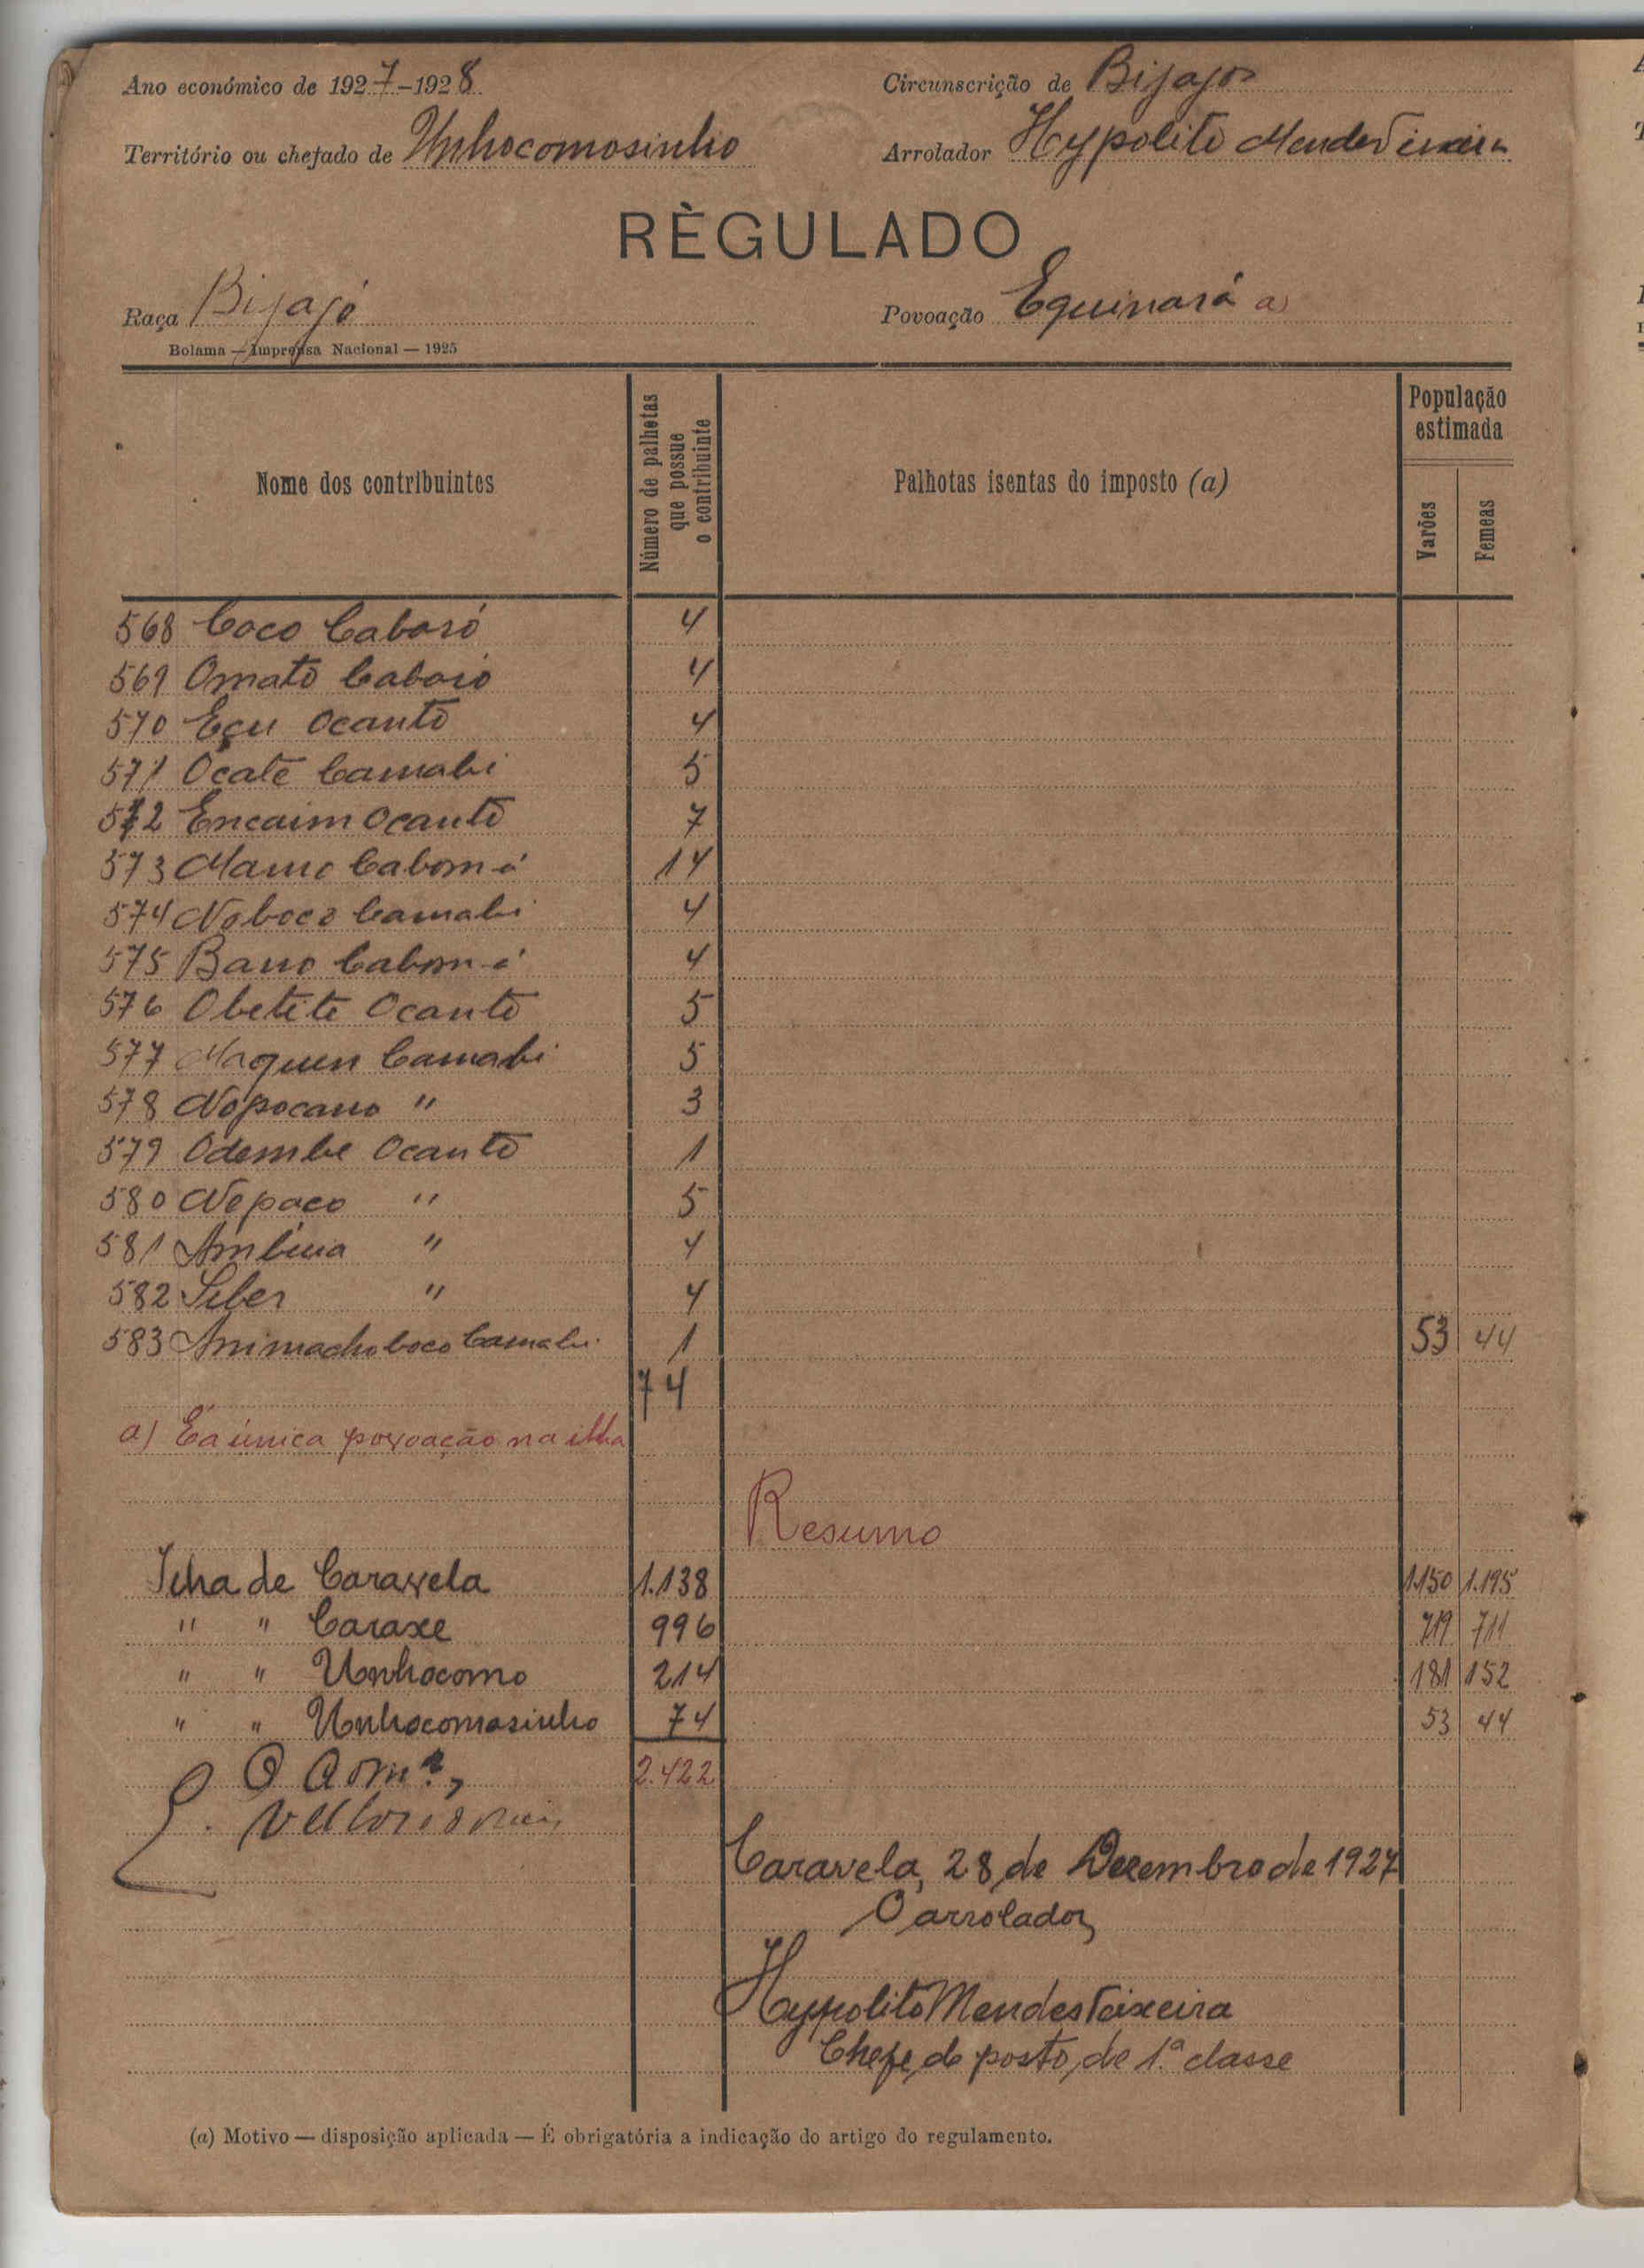 Ano económico de 1927-1928
Circunscrição de Bijagos
Território ou chefado de Unhocomosinho
Arrolador Hypolito Mendes Teixeira
RÈGULADO
Raça Bijagó
Povoação Equinará a)
Bolama — Imprensa Nacional — 1925
Nome dos contribuintes
Número de palhetas que possue o contribuinte
Palhotas isentas do imposto (a)
População estimada
Varões
Femeas
568 Coco Caboró 4
569 Omató Caboió 4
570 Eçu Ocantó 4
571 Ocate Camabi 5
572 Encaim Ocantó 7
573 Mamo Cabom-á 14
574 Noboco Camabi 4
575 Bano Cabom-á 4
576 Obetete Ocantó 5
577 Maquen Camabi 5
578 Nopocano " 3
579 Odembe Ocantó 1
580 Nepaco " 5
581 " 4
582 " 4
583 Camabi 1 53 44
74
a) É a única povoação na ilha
Resumo
Ilha de Caravela 1.138 1.150 1.195
" " Caraxe 996 719 711
" " Unhocomo 214 181 152
" " Unhocomosinho 74 53 44
O Adm.or, 2.422
Caravela, 28 de Dezembro de 1927
O arrolador,
Hypolito Mendes Teixeira
Chefe de posto, de 1.ª classe
(a) Motivo — disposição aplicada — É obrigatória a indicação do artigo do regulamento.